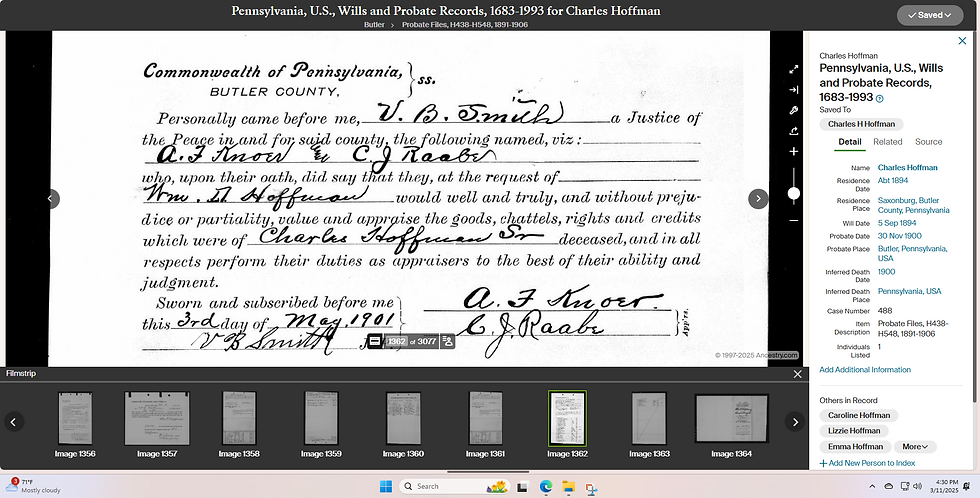 Pennsylvania, U.S., Wills and Probate Records, 1683-1993 for Charles Hoffman
Butler > Probate Files, H438-H548, 1891-1906
Saved
Commonwealth of Pennsylvania,
BUTLER COUNTY,
ss.
Personally came before me, V. B. Smith a Justice of
the Peace in and for said county, the following named, viz:
A. F Knoer & C. J Raabe
who, upon their oath, did say that they, at the request of
Wm. H Hoffman would well and truly, and without preju-
dice or partiality, value and appraise the goods, chattels, rights and credits
which were of Charles Hoffman Sr deceased, and in all
respects perform their duties as appraisers to the best of their ability and
judgment.
Sworn and subscribed before me
this 3rd day of May, 1901
V B Smith
A. F Knoer.
C. J. Raabe
App'rs.
1362 of 3077
© 1997-2025 Ancestry.com
Charles Hoffman
Pennsylvania, U.S., Wills
and Probate Records,
1683-1993
Saved To
Charles H Hoffman
Detail Related Source
Name Charles Hoffman
Residence Date Abt 1894
Residence Place Saxonburg, Butler County, Pennsylvania
Will Date 5 Sep 1894
Probate Date 30 Nov 1900
Probate Place Butler, Pennsylvania, USA
Inferred Death Date 1900
Inferred Death Place Pennsylvania, USA
Case Number 488
Item Description Probate Files, H438-H548, 1891-1906
Individuals Listed 1
Add Additional Information
Others in Record
Caroline Hoffman
Lizzie Hoffman
Emma Hoffman More
+ Add New Person to Index
Filmstrip
Image 1356 Image 1357 Image 1358 Image 1359 Image 1360 Image 1361 Image 1362 Image 1363 Image 1364
3
71°F
Mostly cloudy
Search
4:30 PM
3/11/2025